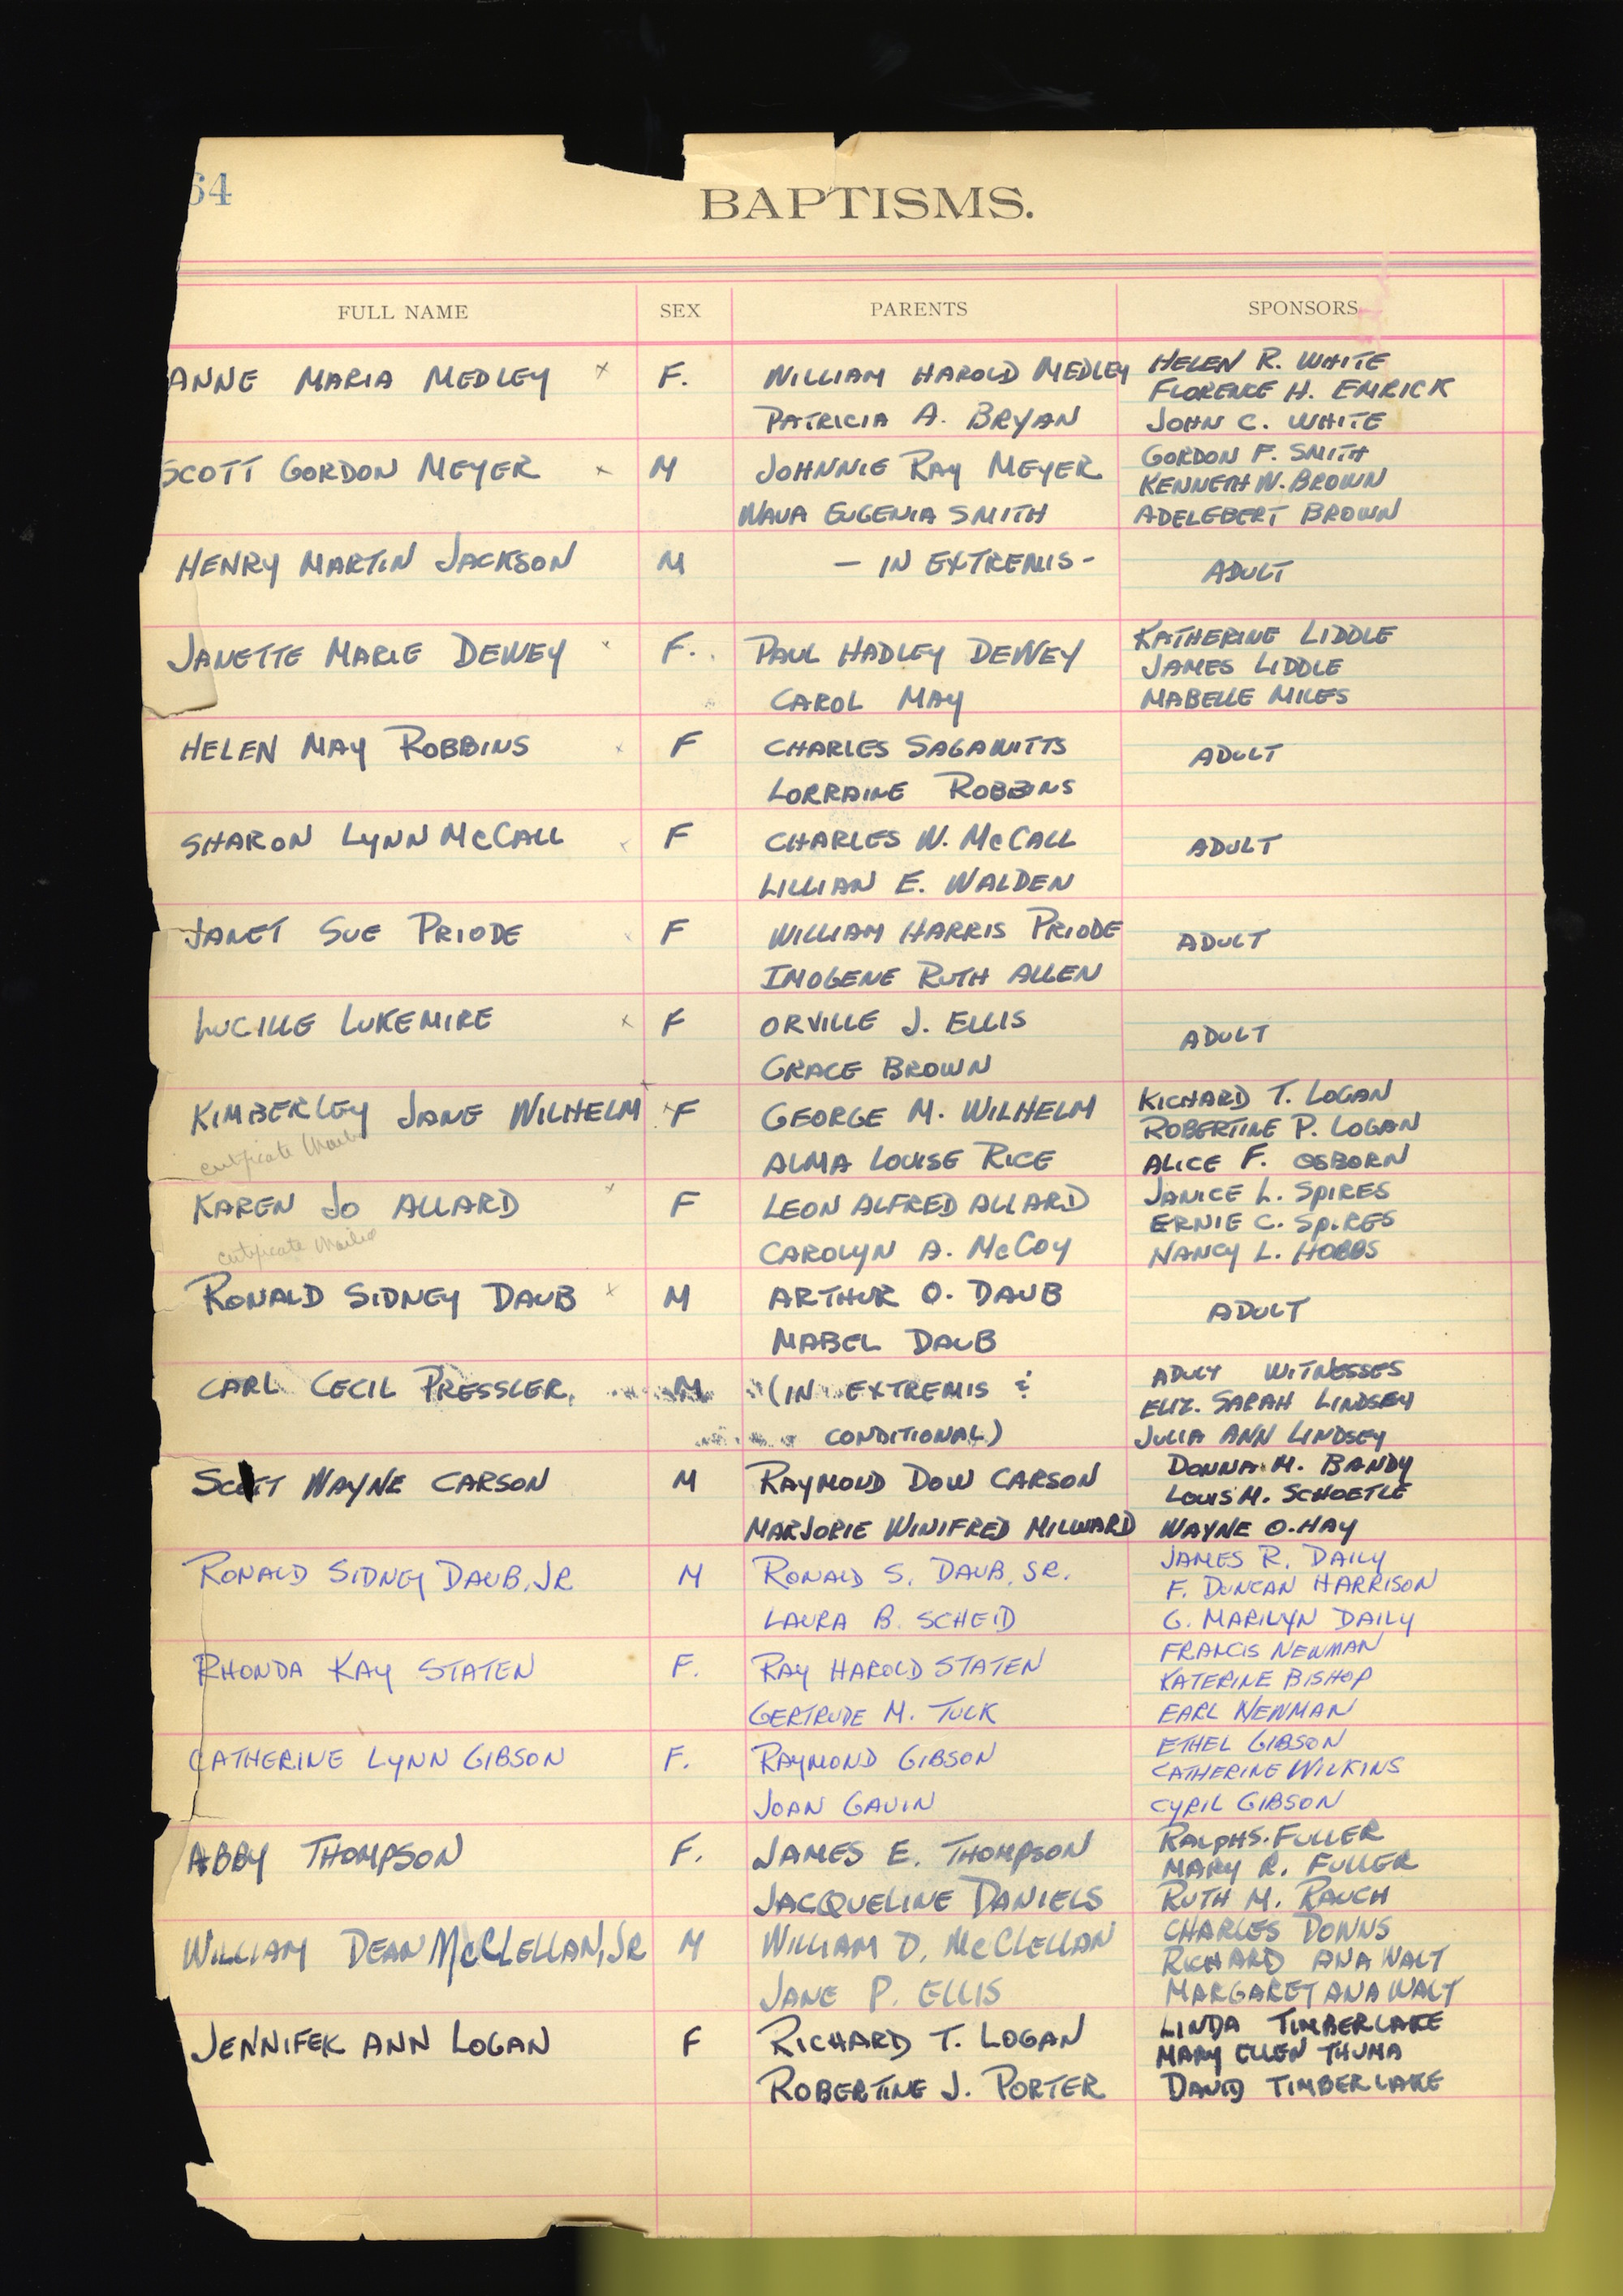 64
BAPTISMS.
FULL NAME SEX PARENTS SPONSORS
ANNE MARIA MEDLEY x F. WILLIAM HAROLD MEDLEY HELEN R. WHITE
FLORENCE H. EMRICK
PATRICIA A. BRYAN JOHN C. WHITE
SCOTT GORDON MEYER x M JOHNNIE RAY MEYER GORDON F. SMITH
KENNETH W. BROWN
WAVA EUGENIA SMITH ADELEBERT BROWN
HENRY MARTIN JACKSON M - IN EXTREMIS - ADULT
JANETTE MARIE DEWEY x F. PAUL HADLEY DEWEY KATHERINE LIDDLE
JAMES LIDDLE
CAROL MAY MABELLE MILES
HELEN MAY ROBBINS x F CHARLES SAGAWITTS ADULT
LORRAINE ROBBINS
SHARON LYNN McCALL x F CHARLES W. McCALL ADULT
LILLIAN E. WALDEN
JANET SUE PRIODE F WILLIAM HARRIS PRIODE ADULT
IMOGENE RUTH ALLEN
LUCILLE LUKEMIRE x F ORVILLE J. ELLIS ADULT
GRACE BROWN
KIMBERLEY JANE WILHELM x F GEORGE M. WILHELM RICHARD T. LOGAN
ROBERTINE P. LOGAN
certificate mailed ALMA LOUISE RICE ALICE F. OSBORN
KAREN JO ALLARD x F LEON ALFRED ALLARD JANICE L. SPIRES
ERNIE C. SPIRES
certificate mailed CAROLYN A. McCOY NANCY L. HOBBS
RONALD SIDNEY DAUB x M ARTHUR O. DAUB ADULT
MABEL DAUB
CARL CECIL PRESSLER. M (IN EXTREMIS & ADULT WITNESSES
ELIZ. SARAH LINDSEY
CONDITIONAL) JULIA ANN LINDSEY
SCOTT WAYNE CARSON M RAYMOND DOW CARSON DONNA M. BANDY
LOUIS M. SCHOETLE
MARJORIE WINIFRED MILWARD WAYNE O. HAY
RONALD SIDNEY DAUB, JR M RONALD S. DAUB, SR. JAMES R. DAILY
F. DUNCAN HARRISON
LAURA B. SCHEID G. MARILYN DAILY
RHONDA KAY STATEN F. RAY HAROLD STATEN FRANCIS NEWMAN
KATERINE BISHOP
GERTRUDE M. TULK EARL NEWMAN
CATHERINE LYNN GIBSON F. RAYMOND GIBSON ETHEL GIBSON
CATHERINE WILKINS
JOAN GAVIN CYRIL GIBSON
ABBY THOMPSON F. JAMES E. THOMPSON RALPH S. FULLER
MARY R. FULLER
JACQUELINE DANIELS RUTH M. RAUCH
WILLIAM DEAN McCLELLAN, JR M WILLIAM D. McCLELLAN CHARLES DOWNS
RICHARD ANAWALT
JANE P. ELLIS MARGARET ANAWALT
JENNIFER ANN LOGAN F RICHARD T. LOGAN LINDA TIMBERLAKE
MARY ELLEN THUMA
ROBERTINE J. PORTER DAVID TIMBERLAKE